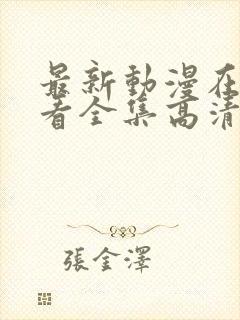 最新動漫在
看全集高清
張金澤